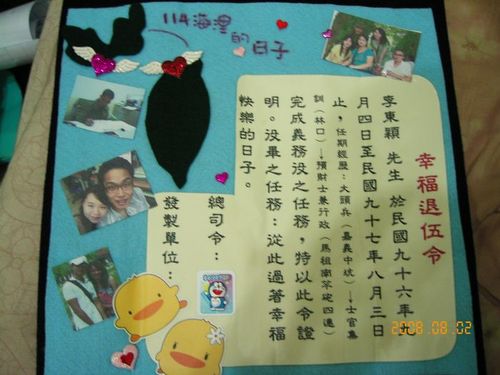 114海浬
的
日子
幸福退伍令
李東穎 先生 於民國九十六年七
月四日至民國九十七年八月三日
止，任期經歷：大頭兵（嘉義中坑）→士官集
訓（林口）→預財士兼行政（馬祖南竿砲四連）
完成義務役之任務，特以此令證
明。沒畢之任務：從此過著幸福
快樂的日子。
總司令：
發製單位：
2008.08.02